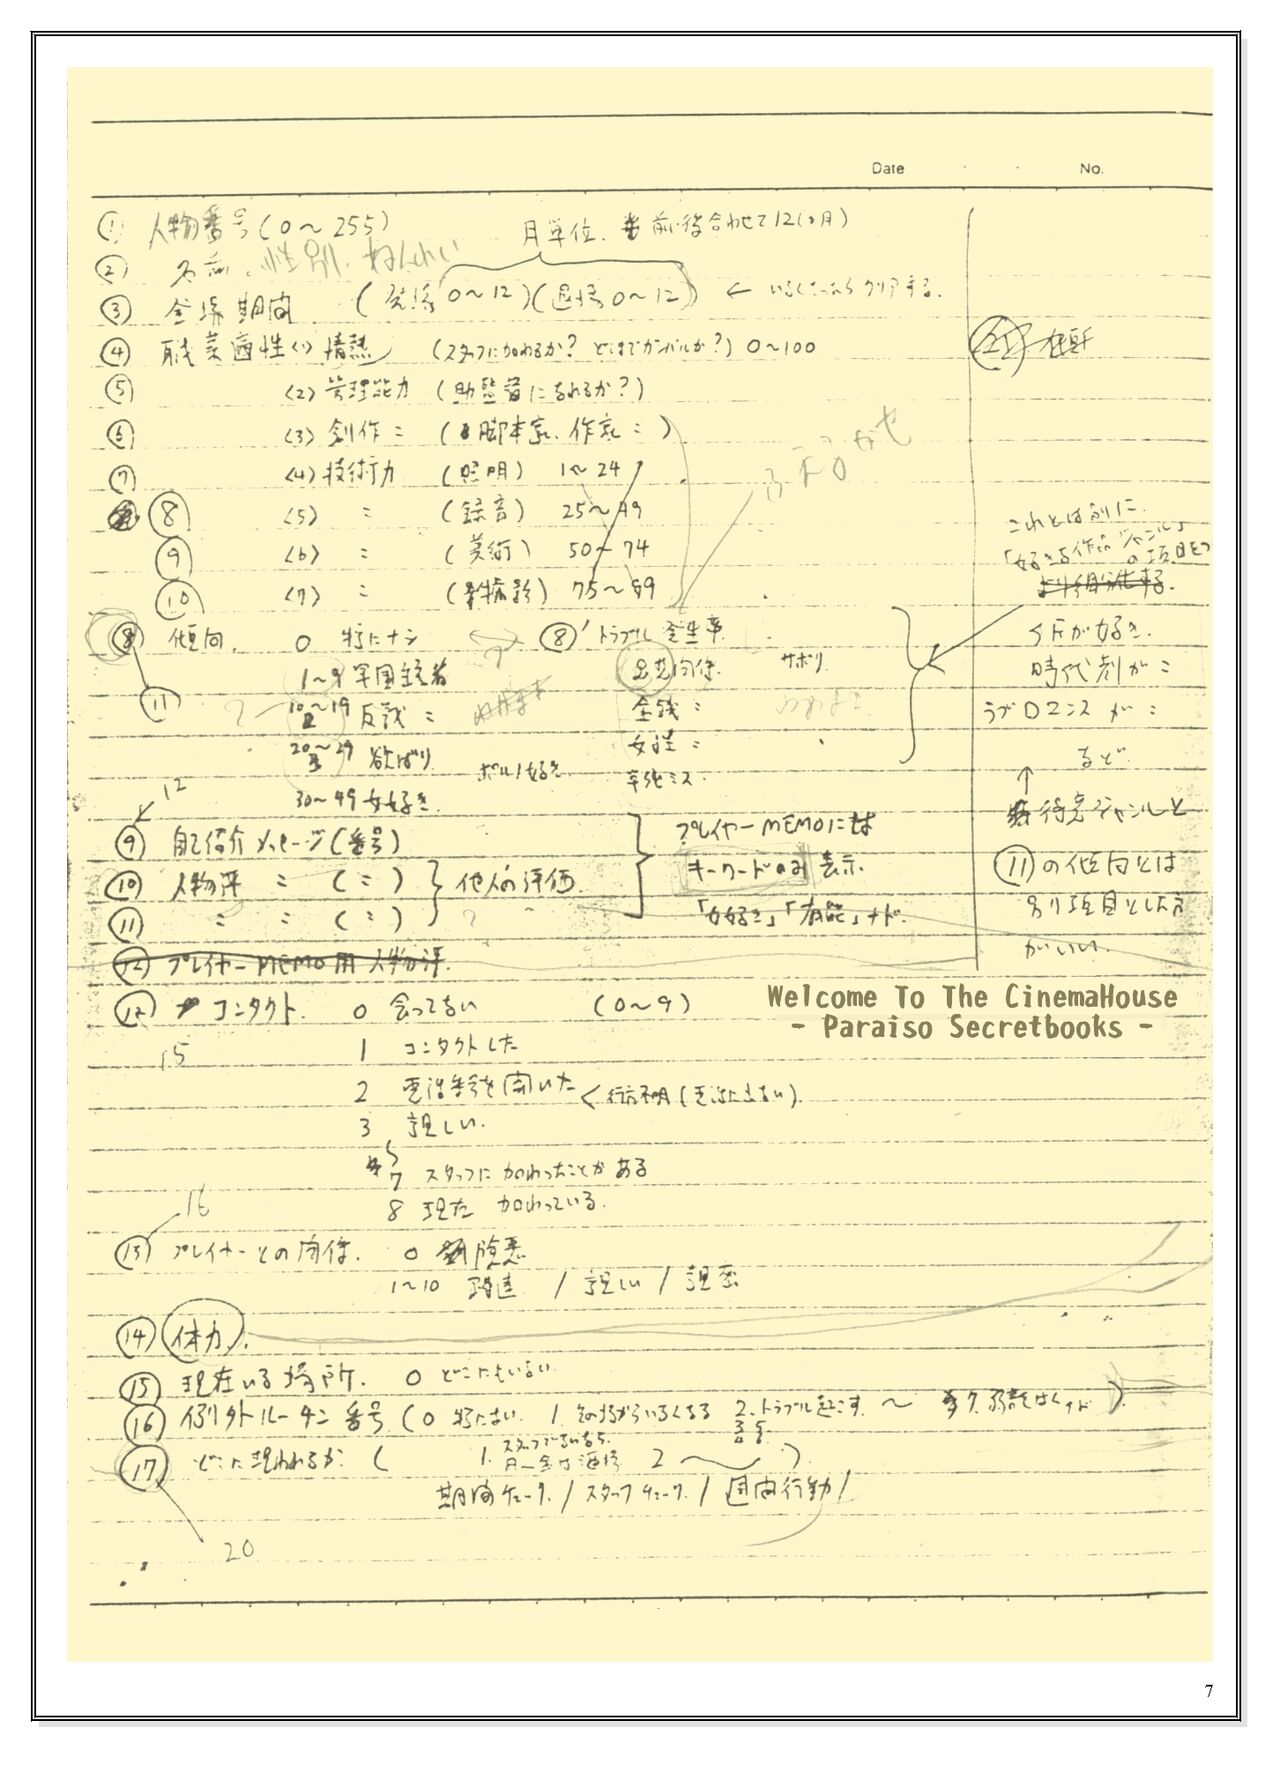 Date No.
① 人物番号(0～255)
月単位. 前後合わせて12(ヶ月)
② 名前. 性別. ねんれい
③ 登場期間 (登場0～12)(退場0～12) ← いなくなったらクリアする.
④ 職業適性(1)情熱 (スタッフに加わるか? どこまでガンバルか?) 0～100
⑤ (2)管理能力 (助監督になれるか?)
⑥ (3)創作〃 (脚本家. 作家〃)
⑦ (4)技術力 (照明) 1～24
⑧ (5) 〃 (録音) 25～49
⑨ (6) 〃 (美術) 50～74
⑩ (7) 〃 (撮影) 75～99
ふえるかも
これとは別に
「好きな作品ジャンル」の項目を
より細分化する.
SFが好き.
時代劇が〃
ラブロマンスが〃
など.
↑
得意ジャンルと
⑪の傾向とは
別項目とした方
がいい.
⑧ 傾向. 0 特にナシ
1～9 軍国主義者
10～19 反戦〃
20～29 欲ばり
30～49 女好き.
ポルノ好き
⑪
⑧' トラブル発生率.
サボり
金銭〃
女性〃
12
⑨ 自己紹介メッセージ(番号)
⑩ 人物評 〃 (〃)
⑪ 〃 〃 (〃)
他人の評価.
プレイヤーMEMOには
キーワードのみ表示.
「女好き」「有能」ナド.
⑫ プレイヤーMEMO用人物評.
⑫ コンタクト. 0 会ってない (0～9)
15
1 コンタクトした
2 電話番号を聞いた ← 行方不明(電話に出ない).
3 親しい.
7 スタッフに加わったことがある
8 現在 加わっている.
16
⑬ プレイヤーとの関係. 0 険悪
1～10 疎遠 / 親しい / 親密
⑭ 体力.
⑮ 現在いる場所. 0 どこにもいない
⑯ 例外ルーチン番号 (0 特にない. 1. その場からいなくなる 2. トラブル起こす. ～
⑰ どこに現われるか ( 1. スタッフでないなら 2 ～ )
期間チェック. / スタッフチェック. / 週間行動 /
20
Welcome To The CinemaHouse
- Paraiso Secretbooks -
7